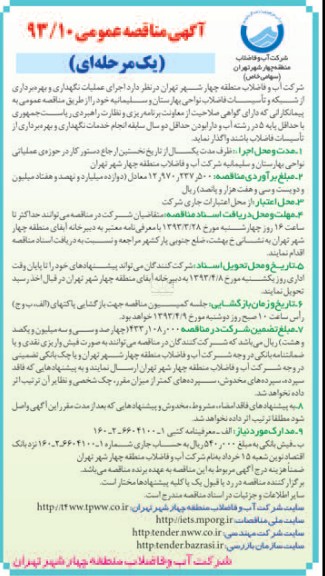 آگهی مناقصه عمومی ۹۳/۱۰
(یک مرحله‌ای)
شرکت آب و فاضلاب
منطقه چهار شهر تهران
(سهامی خاص)
شرکت آب و فاضلاب منطقه چهار شهر تهران در نظر دارد اجرای عملیات نگهداری و بهره‌برداری
از شبکه و تأسیسات فاضلاب نواحی بهارستان و سلیمانیه خود را از طریق مناقصه عمومی به
پیمانکارانی که دارای گواهی صلاحیت از معاونت برنامه‌ریزی و نظارت راهبردی ریاست‌جمهوری
با حداقل پایه ۵ در رشته آب و دارا بودن حداقل دو سال سابقه انجام خدمات نگهداری و بهره‌برداری از
تأسیسات فاضلاب باشند واگذار نماید.
۱-مدت و محل اجرا: ظرف مدت یکسال از تاریخ نخستین ارجاع دستور کار در حوزه‌ی عملیاتی
نواحی بهارستان و سلیمانیه شرکت آب و فاضلاب منطقه چهار شهر تهران
۲-مبلغ برآوردی مناقصه: ۱۲٫۹۷۰٫۲۳۷٫۵۰۰ معادل (دوازده میلیارد و نهصد و هفتاد میلیون
و دویست و سی و هفت هزار و پانصد) ریال
۳-محل اعتبار: از محل اعتبارات جاری شرکت
۴-مهلت و محل دریافت اسناد مناقصه: متقاضیان شرکت در مناقصه می‌توانند حداکثر تا
ساعت ۱۶ روز چهارشنبه مورخ ۱۳۹۳/۳/۲۸ با معرفی‌نامه معتبر به دبیرخانه آبفای منطقه چهار
شهر تهران به نشانی خ بهشت، ضلع جنوبی پارکشهر مراجعه و نسبت به دریافت اسناد مناقصه
اقدام نمایند.
۵-تاریخ و محل تحویل اسناد: شرکت‌کنندگان می‌توانند پیشنهادهای خود را تا پایان وقت
اداری روز یکشنبه مورخ ۱۳۹۳/۴/۸ به دبیرخانه آبفای منطقه چهار شهر تهران در قبال اخذ رسید
تحویل نمایند.
۶-تاریخ و زمان بازگشایی: جلسه کمیسیون مناقصه جهت بازگشایی پاکتهای (الف، ب و ج)
رأس ساعت ۱۰ صبح روز دوشنبه مورخ ۱۳۹۳/۴/۹ خواهد بود.
۷-مبلغ تضمین شرکت در مناقصه ۴۳۳٫۱۰۸٫۰۰۰ (چهارصد و سی و سه میلیون و یکصد
و هشت) ریال می‌باشد که شرکت‌کنندگان در مناقصه می‌توانند به صورت فیش واریزی نقدی و یا
ضمانتنامه بانکی در وجه شرکت آب و فاضلاب منطقه چهار شهر تهران و یا چک بانکی تضمینی
در وجه شرکت آب و فاضلاب منطقه چهار شهر تهران ارسال نمایند و به پیشنهادهایی که فاقد
سپرده، سپرده‌های مخدوش، سپرده‌های کمتر از میزان مقرر، چک شخصی و نظایر آن ترتیب اثر
داده نخواهد شد.
۸-به پیشنهادهای فاقد امضاء، مشروط، مخدوش و پیشنهادهایی که بعد از مدت مقرر این آگهی واصل
شود مطلقا ترتیب اثر داده نخواهد شد.
۹-مدارک مورد نیاز: الف-معرفینامه کتبی
ب-فیش بانکی به مبلغ ۵۴۰٫۰۰۰ ریال به حساب جاری شماره نزد بانک
اقتصاد نوین شعبه ۱۵ خرداد به نام شرکت آب و فاضلاب منطقه چهار شهر تهران
ضمناً هزینه درج آگهی مربوط به این مناقصه به عهده برنده مناقصه می‌باشد.
برگزار کننده مناقصه در رد یا قبول یک یا کلیه پیشنهادها مختار است.
سایر اطلاعات و جزئیات در اسناد مناقصه مندرج است.
سایت شرکت آب و فاضلاب منطقه چهار شهر تهران: http://t4ww.tpww.co.ir
سایت ملی مناقصات: http://iets.mporg.ir
سایت شرکت مهندسی: http:tender.nww.co.ir
سایت سازمان بازرسی: http:tender.bazrasi.ir
شرکت آب و فاضلاب منطقه چهار شهر تهران